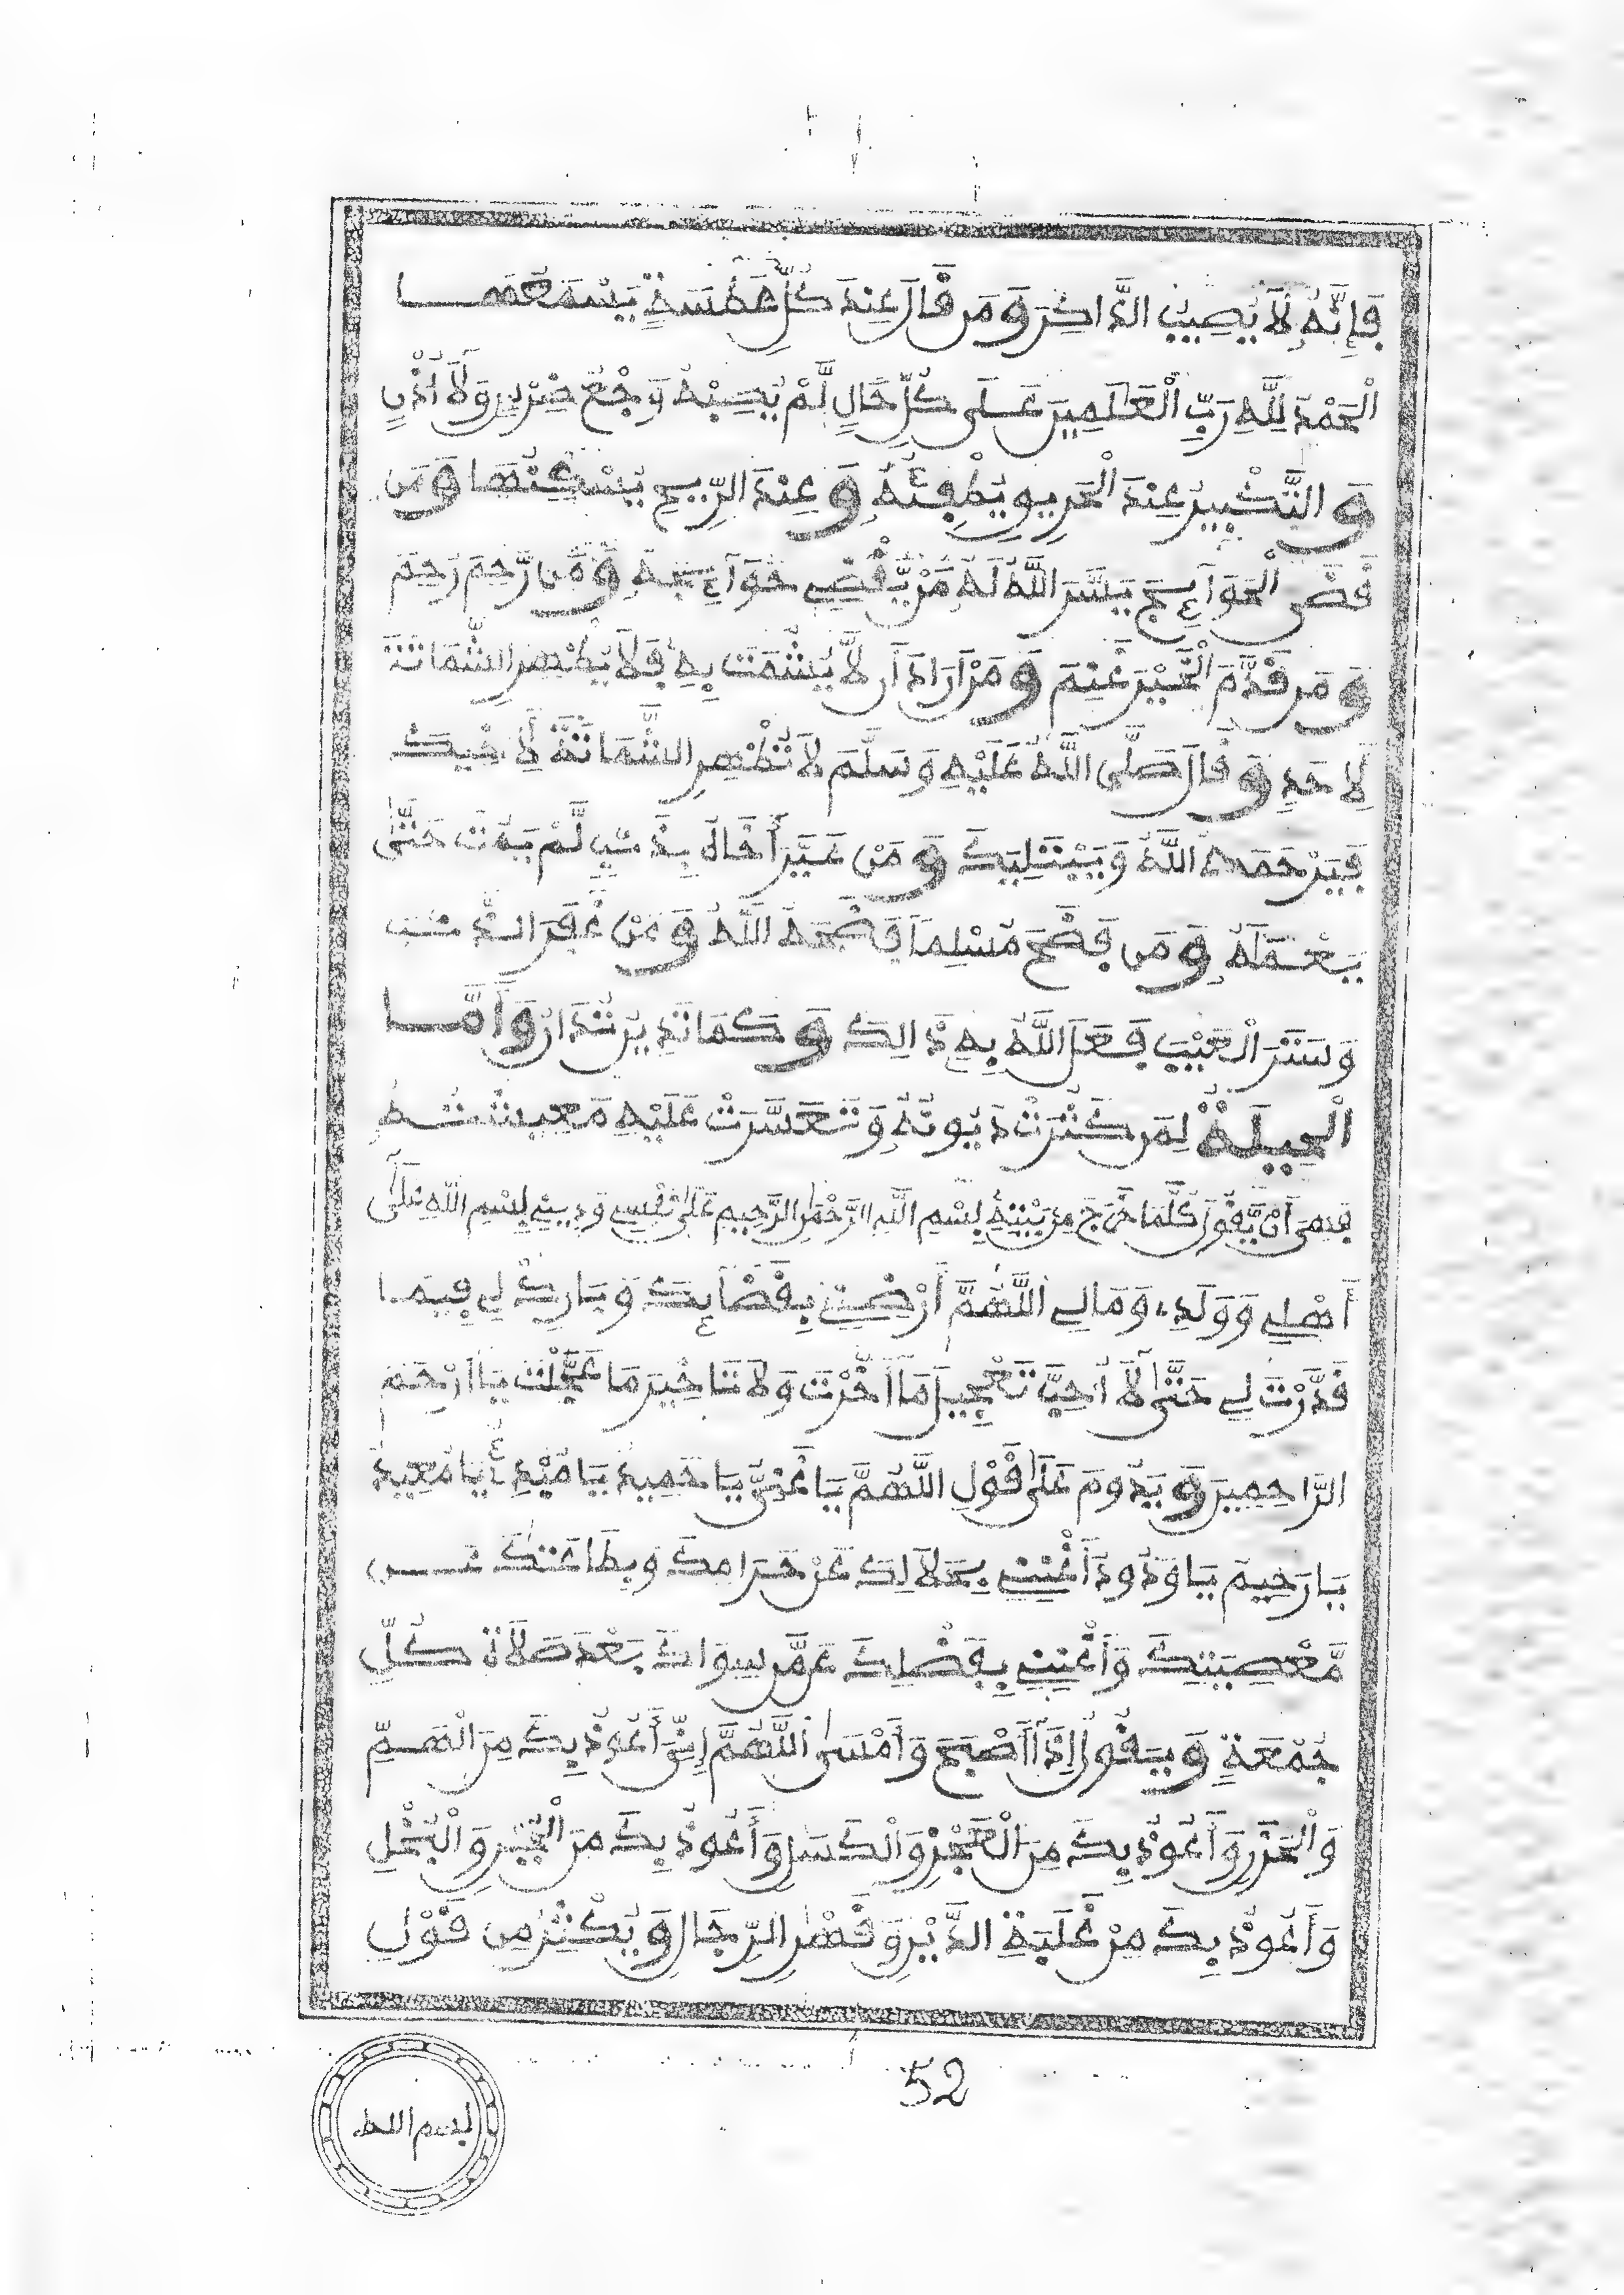 فَإِنَّهُ لَا يُصِيبُ الذَّاكِرَ وَمَن قَالَ عِندَ كُلِّ عَطْسَةٍ يَسْمَعُهَا
الْحَمْدُ لِلَّهِ رَبِّ الْعَالَمِينَ عَلَى كُلِّ حَالٍ لَّمْ يُصِبْهُ وَجَعُ ضِرْسٍ وَلَا أُذُنٍ
وَالتَّكْبِيرُ عِندَ الْحَرِيقِ يُطْفِئُهُ وَعِندَ الرِّيحِ يُسْكِنُهَا وَمَن
قَضَى الْحَوَائِجَ يَسَّرَ اللَّهُ لَهُ مَنْ يَّقْضِي حَوَائِجَهُ وَمَن رَّحِمَ رُحِمَ
وَمَن قَدَّمَ الْخَيْرَ غَنِمَ وَمَنْ أَرَادَ أَن لَّا يُشْمَتَ بِهِ فَلَا يُظْهِرِ الشَّمَاتَةَ
لِأَحَدٍ وَقَالَ صَلَّى اللَّهُ عَلَيْهِ وَسَلَّمَ لَا تُظْهِرِ الشَّمَاتَةَ لِأَخِيكَ
فَيَرْحَمَهُ اللَّهُ وَيَبْتَلِيَكَ وَمَنْ عَيَّرَ أَخَاهُ بِذَنْبٍ لَّمْ يَمُتْ حَتَّى
يَعْمَلَهُ وَمَن فَضَحَ مُسْلِمًا فَضَحَهُ اللَّهُ وَمَنْ غَفَرَ الذَّنبَ
وَسَتَرَ الْعَيْبَ فَعَلَ اللَّهُ بِهِ ذَالِكَ وَكَمَا تَدِينُ تُدَانُ وَأَمَّا
الْحِيلَةُ لِمَن كَثُرَتْ دُيُونُهُ وَتَعَسَّرَتْ عَلَيْهِ مَعِيشَتُهُ
فَهِيَ أَنْ يَّقُولَ كُلَّمَا خَرَجَ مِنْ بَيْتِهِ بِسْمِ اللَّهِ الرَّحْمَٰنِ الرَّحِيمِ عَلَى نَفْسِي وَدِينِي بِسْمِ اللَّهِ عَلَى
أَهْلِي وَوَلَدِي وَمَالِي اللَّهُمَّ أَرْضِنِي بِقَضَائِكَ وَبَارِكْ لِي فِيمَا
قَدَّرْتَ لِي حَتَّى لَا أُحِبَّ تَعْجِيلَ مَا أَخَّرْتَ وَلَا تَاخِيرَ مَا عَجَّلْتَ يَا أَرْحَمَ
الرَّاحِمِينَ وَيَدُومَ عَلَى قَوْلِ اللَّهُمَّ يَا غَنِيُّ يَا حَمِيدُ يَا مُبْدِئُ يَا مُعِيدُ
يَا رَحِيمُ يَا وَدُودُ أَغْنِنِي بِحَلَالِكَ عَنْ حَرَامِكَ وَبِطَاعَتِكَ عَن
مَّعْصِيَتِكَ وَأَغْنِنِي بِفَضْلِكَ عَمَّن سِوَاكَ بَعْدَ صَلَاةِ كُلِّ
جُمُعَةٍ وَيَقُولُ إِذَا أَصْبَحَ وَأَمْسَى اللَّهُمَّ إِنِّي أَعُوذُ بِكَ مِنَ الْهَمِّ
وَالْحَزَنِ وَأَعُوذُ بِكَ مِنَ الْعَجْزِ وَالْكَسَلِ وَأَعُوذُ بِكَ مِنَ الْجُبْنِ وَالْبُخْلِ
وَأَعُوذُ بِكَ مِنْ غَلَبَةِ الدَّيْنِ وَقَهْرِ الرِّجَالِ وَيُكْثِرُ مِن قَوْلِ
52
بسم الله